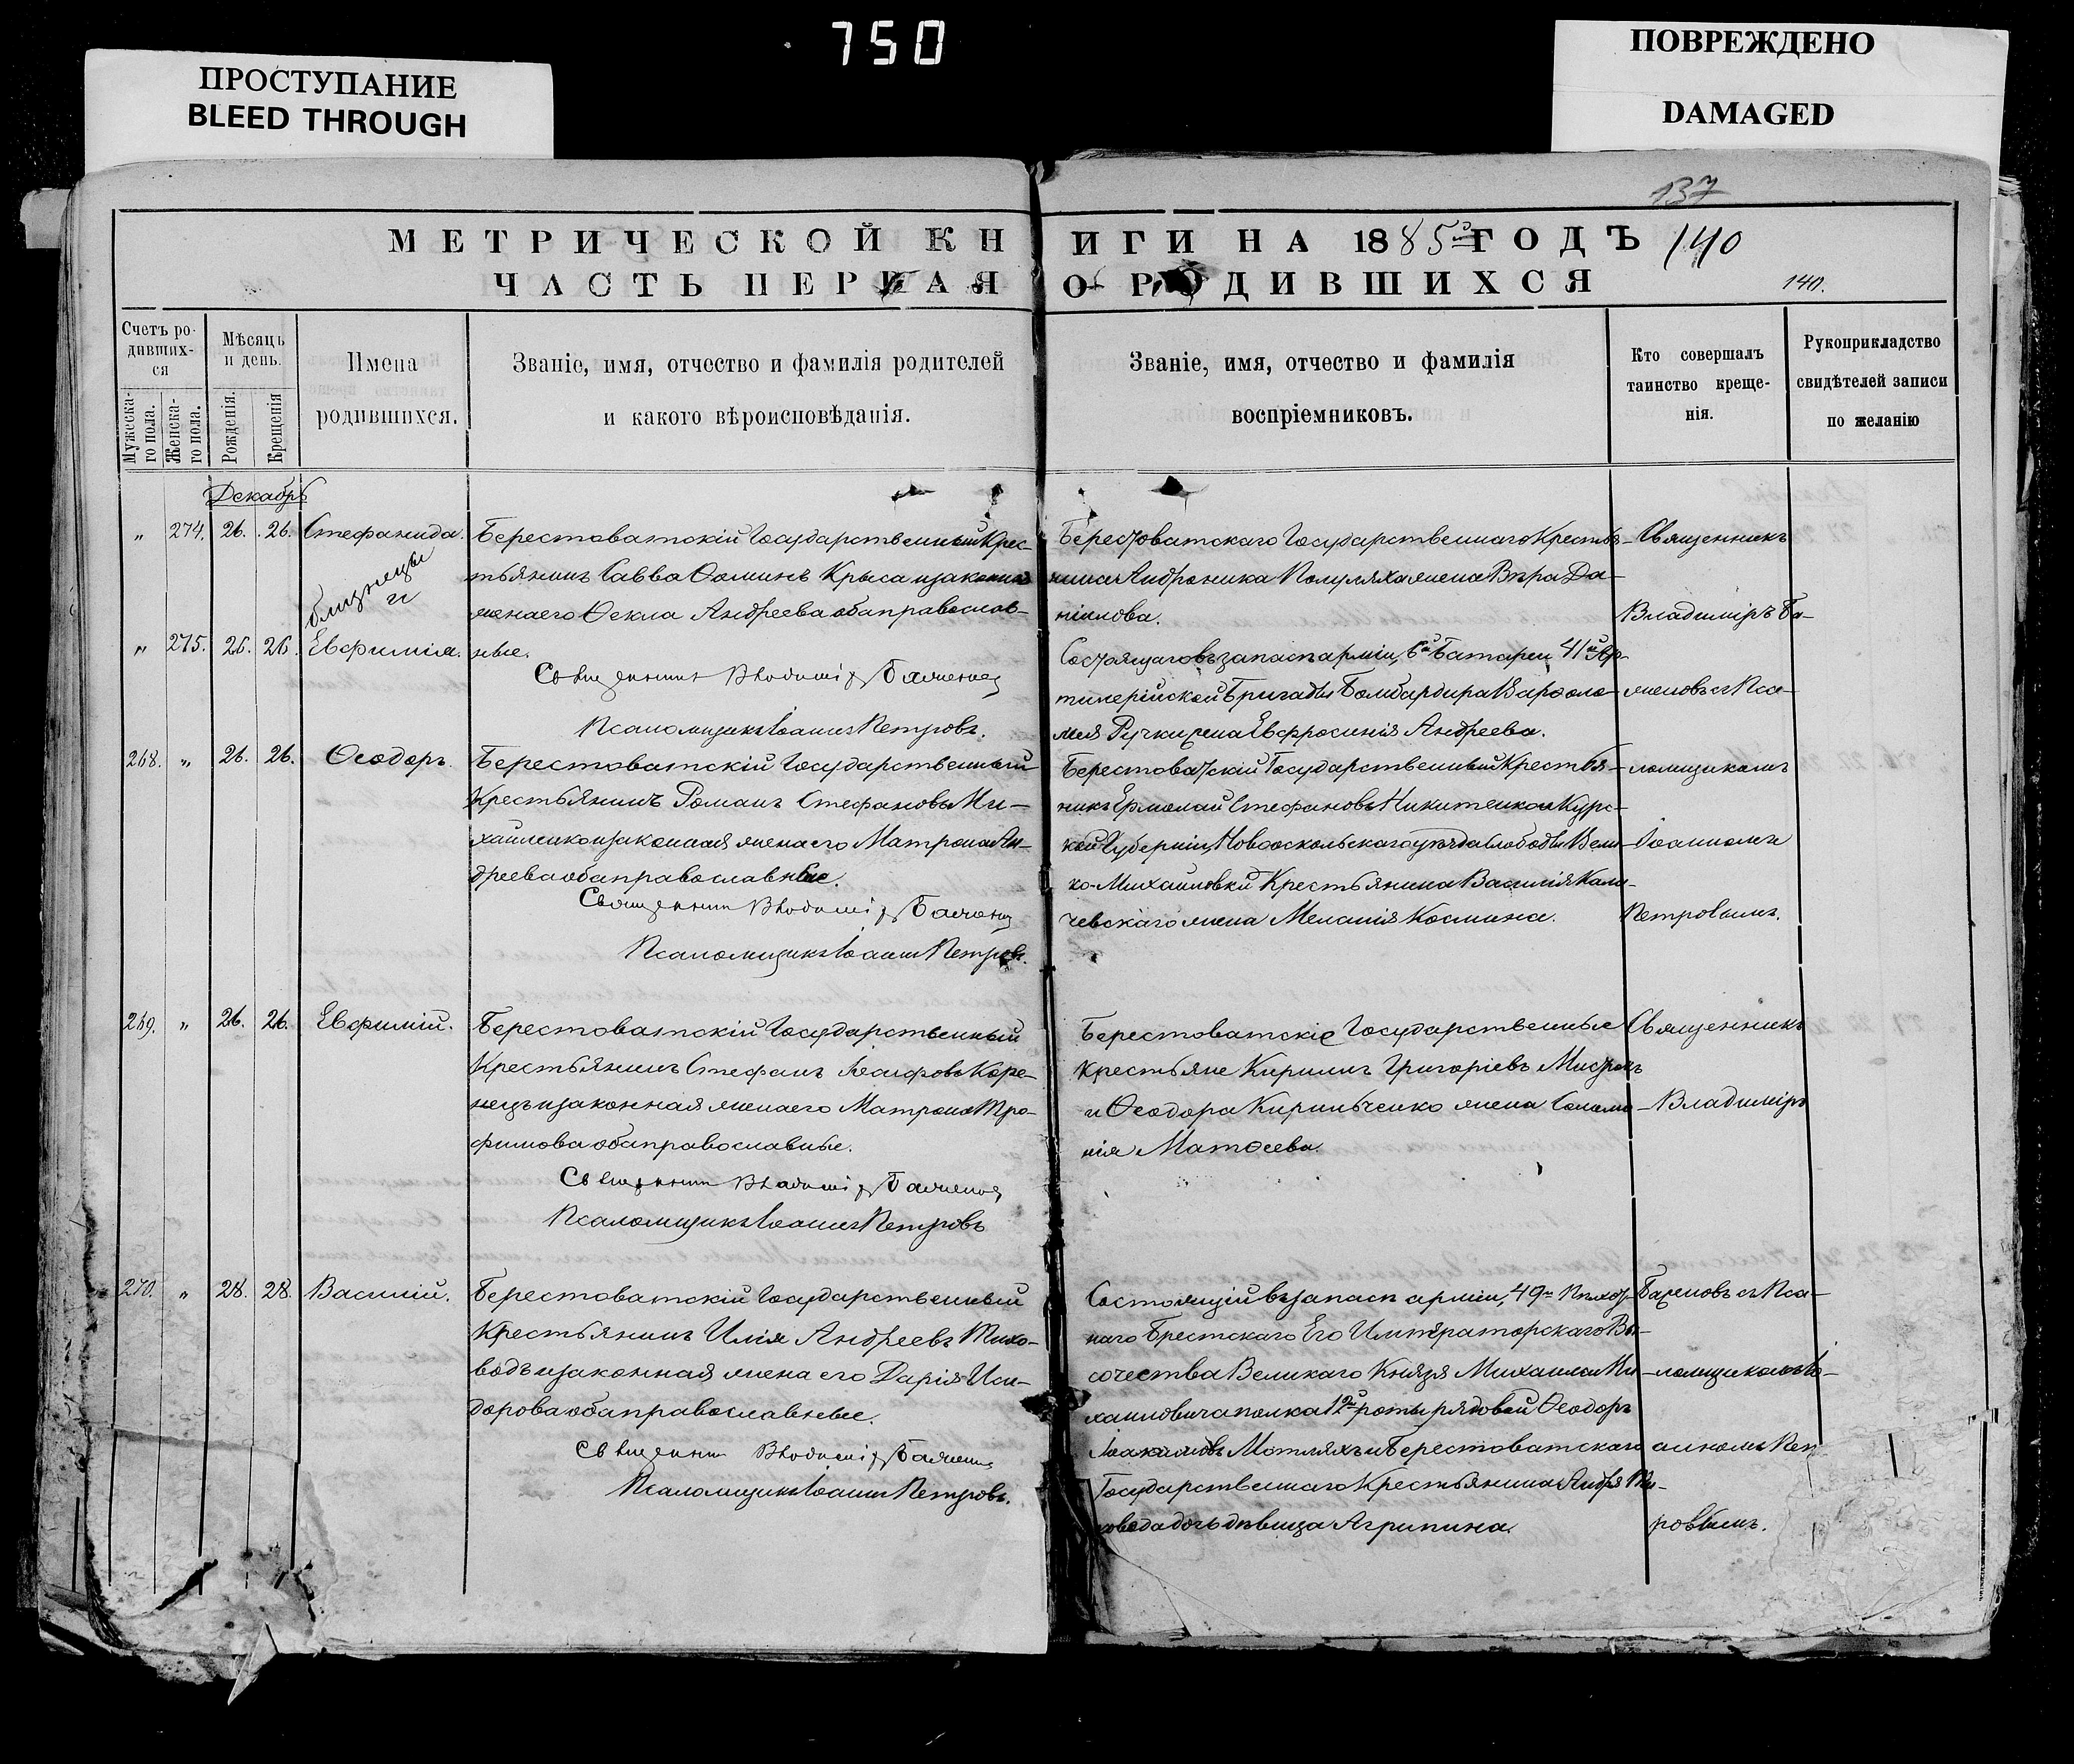 750
ПРОСТУПАНИЕ
BLEED THROUGH
ПОВРЕЖДЕНО
DAMAGED
137
МЕТРИЧЕСКОЙ КНИГИ НА 1885й ГОДЪ 140
ЧАСТЬ ПЕРВАЯ О РОДИВШИХСЯ 140.
Счетъ родившихся
Мужескаго пола.
Женскаго пола.
Мѣсяцъ и день.
Рожденія.
Крещенія
Имена
родившихся.
Званіе, имя, отчество и фамилія родителей
и какого вѣроисповѣданія.
Званіе, имя, отчество и фамилія
воспріемниковъ.
Кто совершалъ
таинство креще-
нія.
Рукоприкладство
свидѣтелей записи
по желанію
Декабрь
" 274. 26. 26. Стефанида.
близнецы
и
" 275. 26. 26. Евфимія.
Берестоватскій Государственный Крес-
тьянинъ Савва Ѳоминъ Крыса и законная
жена его Ѳекла Андреева оба православ-
ные.
Священникъ Владиміръ
Псаломщикъ Іоаннъ Петровъ.
Берестоватскаго Государственнаго Крестья-
нина Андроника Полуляха жена Вѣра Да-
ніилова.
Состоящаго въ запасѣ арміи, 6й Батареи 41й Ар-
тилерійской Бригады Бомбардира Варѳоло-
мея Ручки жена Евфросинія Андреева.
Священникъ
Владиміръ Ба-
женовъ съ Пса-
ломщикомъ
Іоанномъ
Петровымъ.
268. " 26. 26. Ѳеодоръ.
Берестоватскій Государственный
Крестьянинъ Романъ Стефановъ Ми-
хайленко и законная жена его Матрона Ан-
дреева оба православные.
Священникъ Владиміръ
Псаломщикъ Іоаннъ Петровъ.
Берестоватскій Государственный Крестья-
нинъ Ермолай Стефановъ Никитенко и Курс-
кой Губерніи, Новооскольскаго уѣзда слободы Вели-
ко-Михайловки Крестьянина Василія
жена Меланія Космина.
269. " 26. 26. Евфимій.
Берестоватскій Государственный
Крестьянинъ Стефанъ Іосифовъ Коре-
нецъ и законная жена его Матрона Тро-
фимова оба православные.
Священникъ Владиміръ
Псаломщикъ Іоаннъ Петровъ
Берестоватскіе Государственные
Крестьяне Кириллъ Григоріевъ
и Ѳеодора Кирильченко жена Соломо-
нія Матѳеева.
Священникъ
Владиміръ
Баженовъ съ Пса-
ломщикомъ Іо-
анномъ Пет
ровымъ.
270. " 28. 28. Василій.
Берестоватскій Государственный
Крестьянинъ Илія Андреевъ Тихо-
водъ и законная жена его Дарія Иси-
дорова оба православные.
Священникъ Владиміръ
Псаломщикъ Іоаннъ Петровъ.
Состоящій въ запасѣ арміи, 49го Пѣхот-
наго Брестскаго Его Императорскаго Вы-
сочества Великаго Князя Михаила Ми-
хаиловича полка 12й роты рядовой Ѳеодоръ
Іоакимовъ Мотляхъ и Берестоватскаго
Государственнаго Крестьянина Андрея Ти-
ховода дочь дѣвица Агрипина.